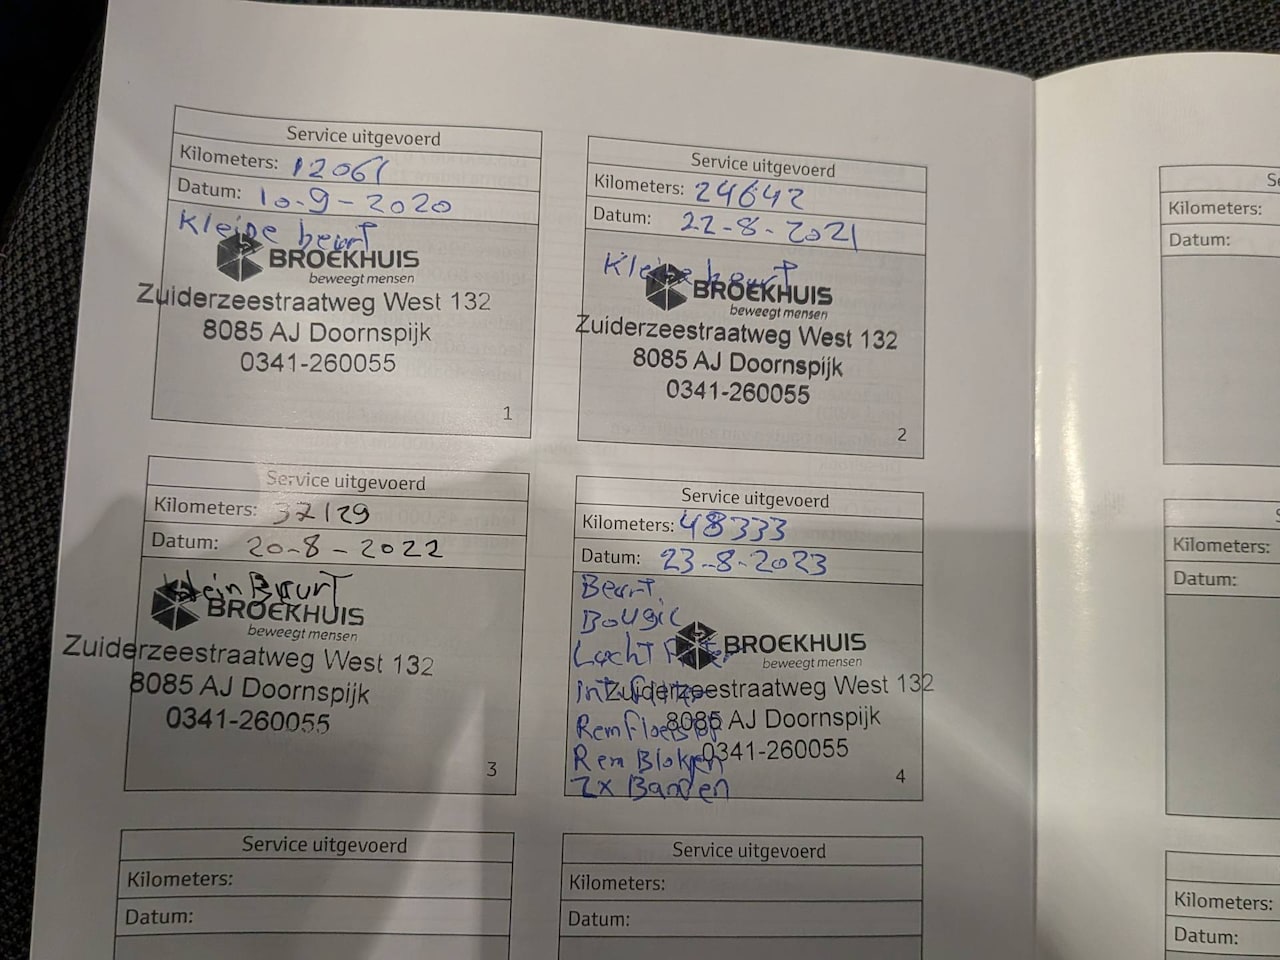 Service uitgevoerd
Kilometers: 12061
Datum: 10-9-2020
Kleine beurt
BROEKHUIS
beweegt mensen
Zuiderzeestraatweg West 132
8085 AJ Doornspijk
0341-260055
1
Service uitgevoerd
Kilometers: 24642
Datum: 22-8-2021
Kleine beurt
BROEKHUIS
beweegt mensen
Zuiderzeestraatweg West 132
8085 AJ Doornspijk
0341-260055
2
Service uitgevoerd
Kilometers: 37129
Datum: 20-8-2022
Klein Beurt
BROEKHUIS
beweegt mensen
Zuiderzeestraatweg West 132
8085 AJ Doornspijk
0341-260055
3
Service uitgevoerd
Kilometers: 48333
Datum: 23-8-2023
Beurt,
Bougie
Lucht Filter
BROEKHUIS
beweegt mensen
Zuiderzeestraatweg West 132
8085 AJ Doornspijk
0341-260055
Rem Blokken
2x Banden
4
Service uitgevoerd
Kilometers:
Datum:
Service uitgevoerd
Kilometers:
Datum:
Se
Kilometers:
Datum:
S
Kilometers:
Datum:
Kilometers:
Datum: